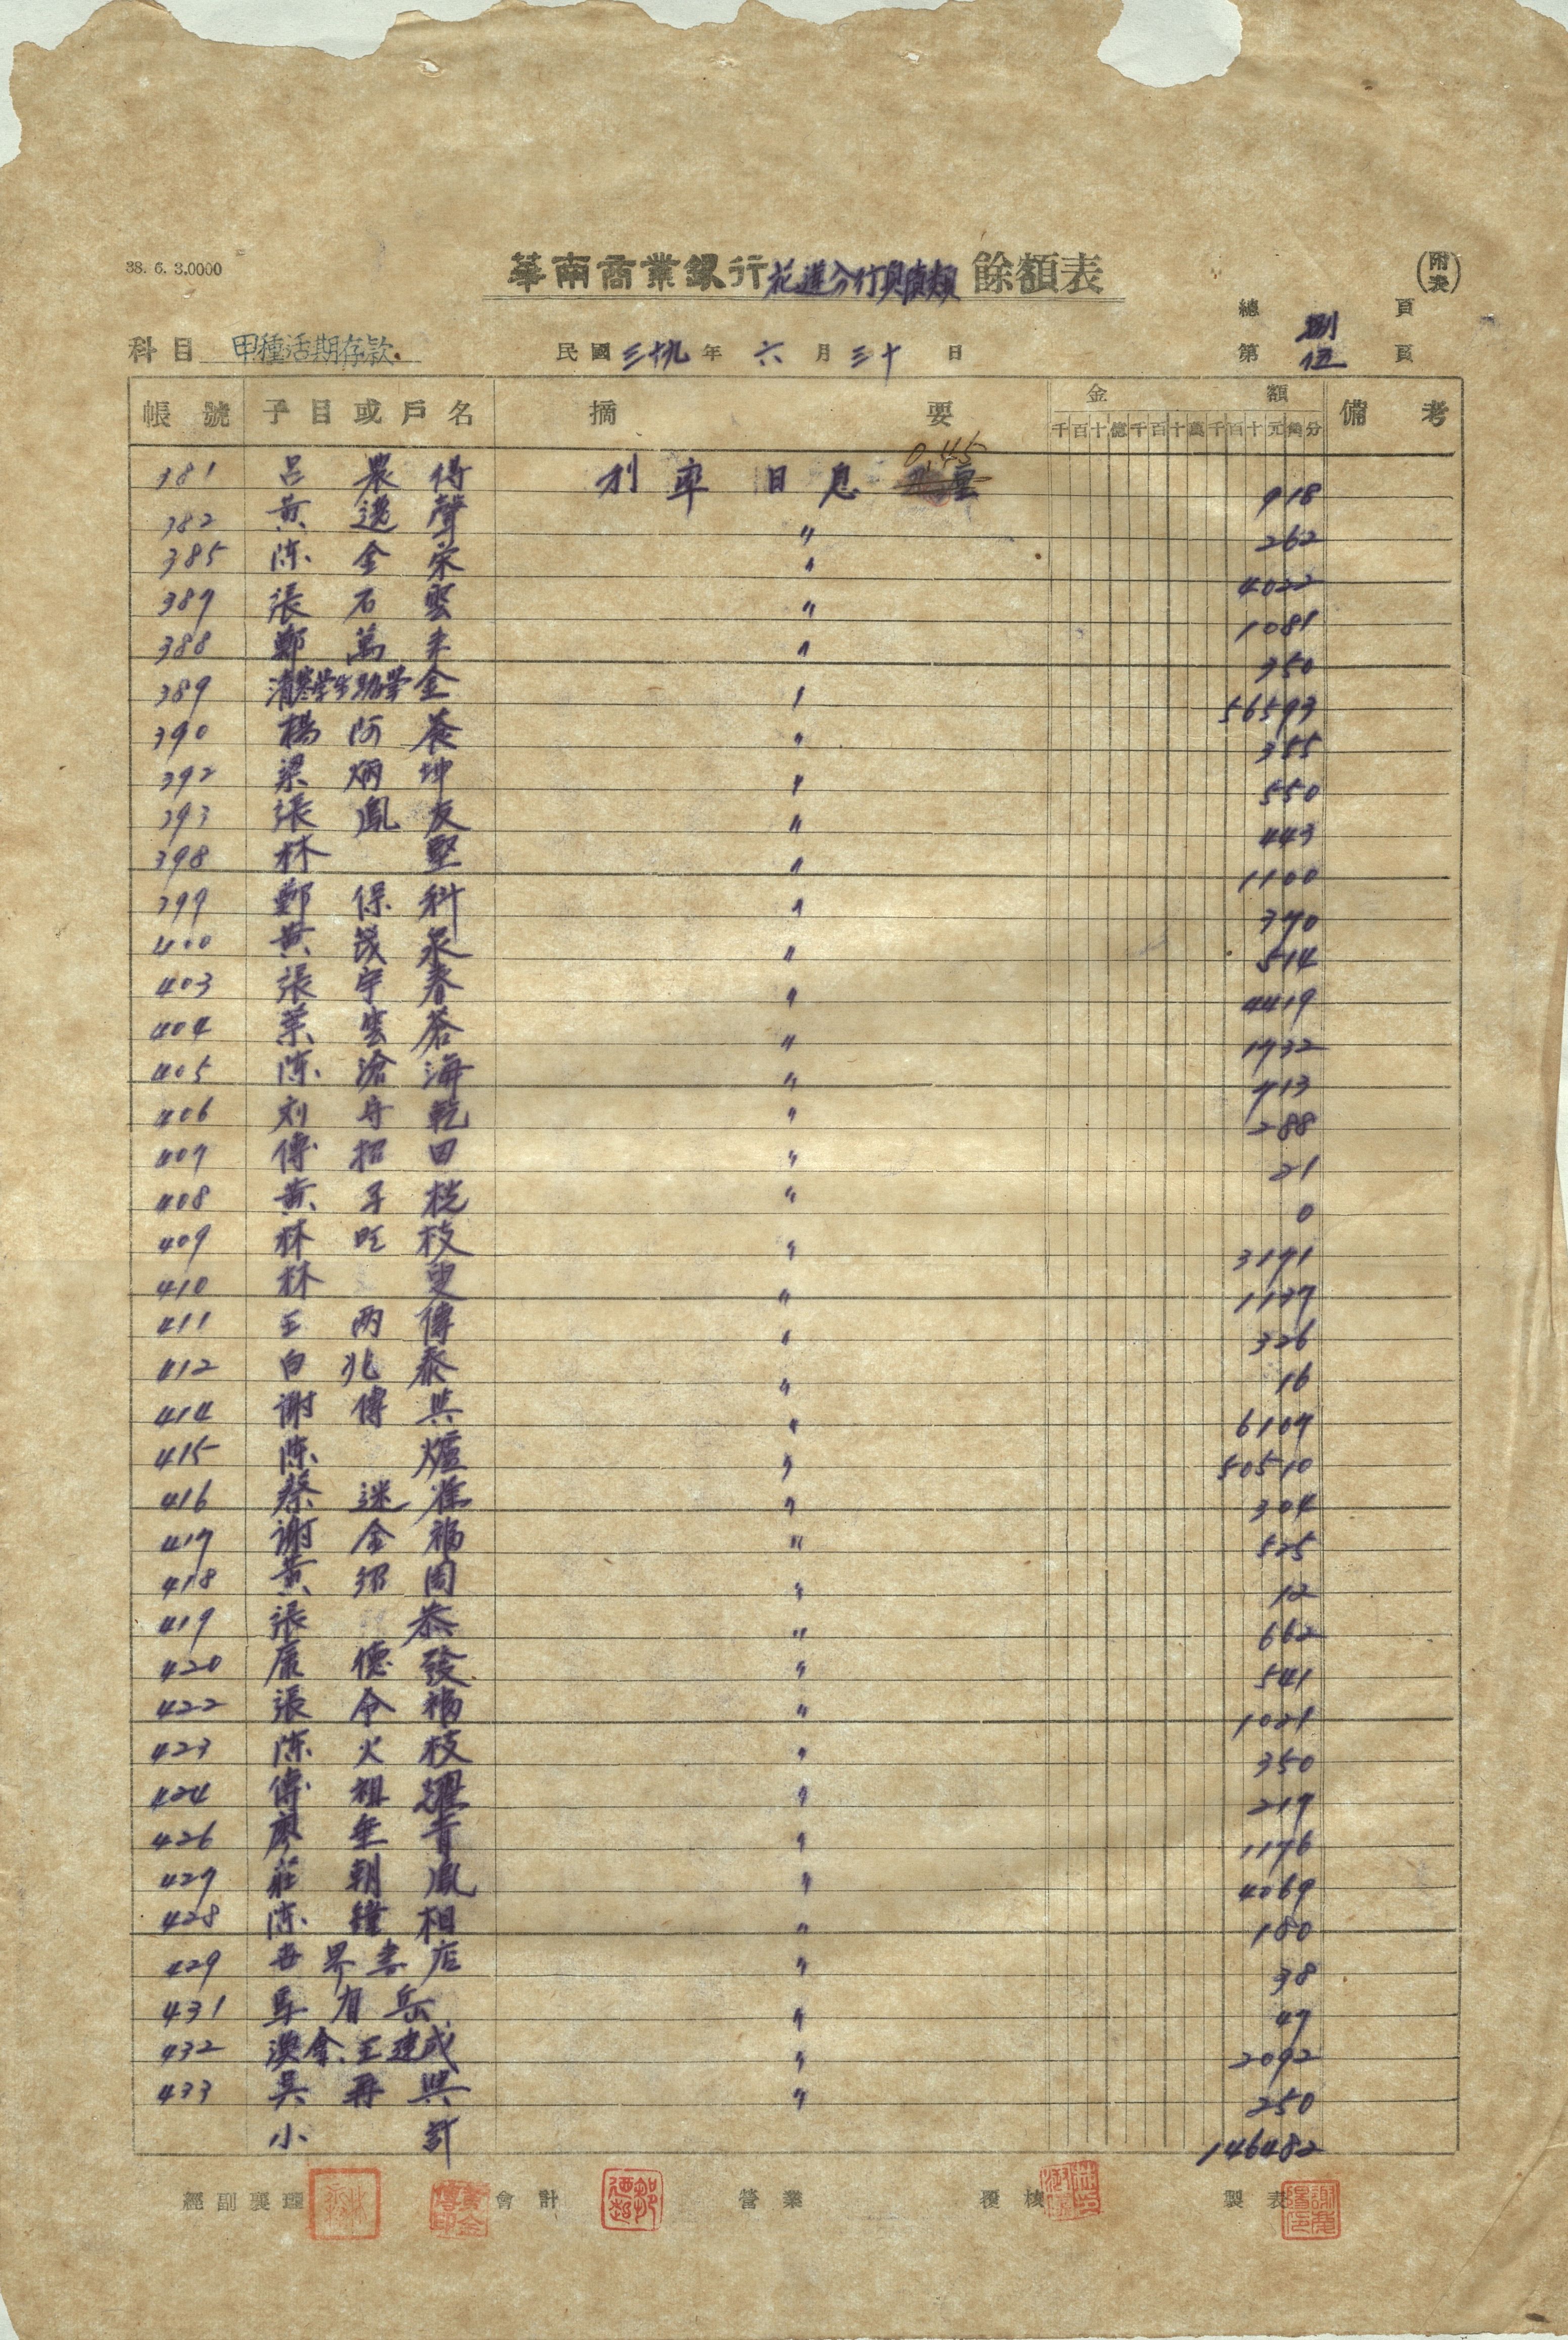 38. 6. 3,0000
華南商業銀行花蓮分行負債類餘額表
(附表)
總 捌 頁
科目 甲種活期存款. 民國 三十九 年 六 月 三十 日 第 伍 頁
帳號 子目或戶名 摘要 金額 備考
千百十億千百十萬千百十元角分
0.45
381 呂農得 利率日息 厘 918
382 黃邊聲 〃 262
385 陈金荣 〃 4022
387 張石 〃 1081
388 鄭萬来 〃 350
389 清寒学生助学金 〃 56593
390 楊阿 〃 355
392 梁炳坤 〃 550
393 張鳳友 〃 443
398 林堅 〃 1100
399 鄭保科 〃 370
400 黃泉 〃 514
403 張宇春 〃 4419
404 葉雲蒼 〃 1732
405 陈滄海 〃 713
406 刘守乾 〃 288
407 傅招田 〃 21
408 黃子 〃 0
409 林旺枝 〃 3191
410 林 〃 1137
411 王两傳 〃 326
412 白兆泰 〃 16
414 謝傳 〃 6107
415 陈爐 〃 50510
416 蔡 〃 304
417 謝金福 〃 525
418 黃紹周 〃 12
419 張恭 〃 662
420 康德發 〃 541
422 張令福 〃 1021
423 陈火枝 〃 350
424 傅祖躍 〃 219
426 廖坐青 〃 1176
427 莊朝鳳 〃 4069
428 陈鐘相 〃 180
429 世界書店 〃 38
431 馬有岳 〃 47
432 王建成 〃 2092
433 吳再興 〃 250
小計 146482
經副襄理 會計 營業 覆核 製表